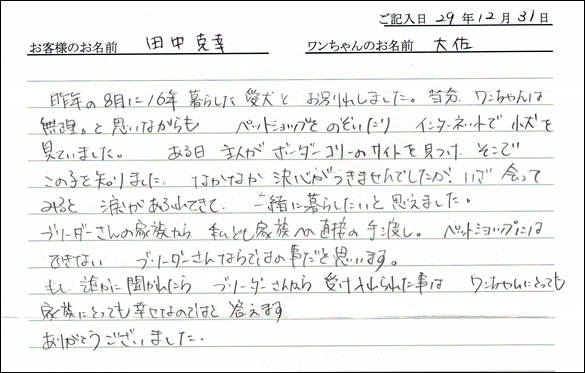 ご記入日 29年12月31日
お客様のお名前 田中克幸 ワンちゃんのお名前 大佐
昨年の8月に16年暮らした愛犬とお別れしました。当分、ワンちゃんは
無理。と思いながらも ペットショップをのぞいたり インターネットで小犬を
見ていました。 ある日 主人がボーダーコリーのサイトを見つけ、そこで
この子を知りました。なかなか決心がつきませんでしたが、いざ会って
みると 涙があふれてきて、一緒に暮らしたいと思えました。
ブリーダーさんの家族から 私ども家族への直接の手渡し。ペットショップには
できない ブリーダーさんならではの事だと思います。
もし、誰かに聞かれたら ブリーダーさんから 受け入れられた事は ワンちゃんにとっても
家族にとっても幸せなのではと 答えます
ありがとうございました.